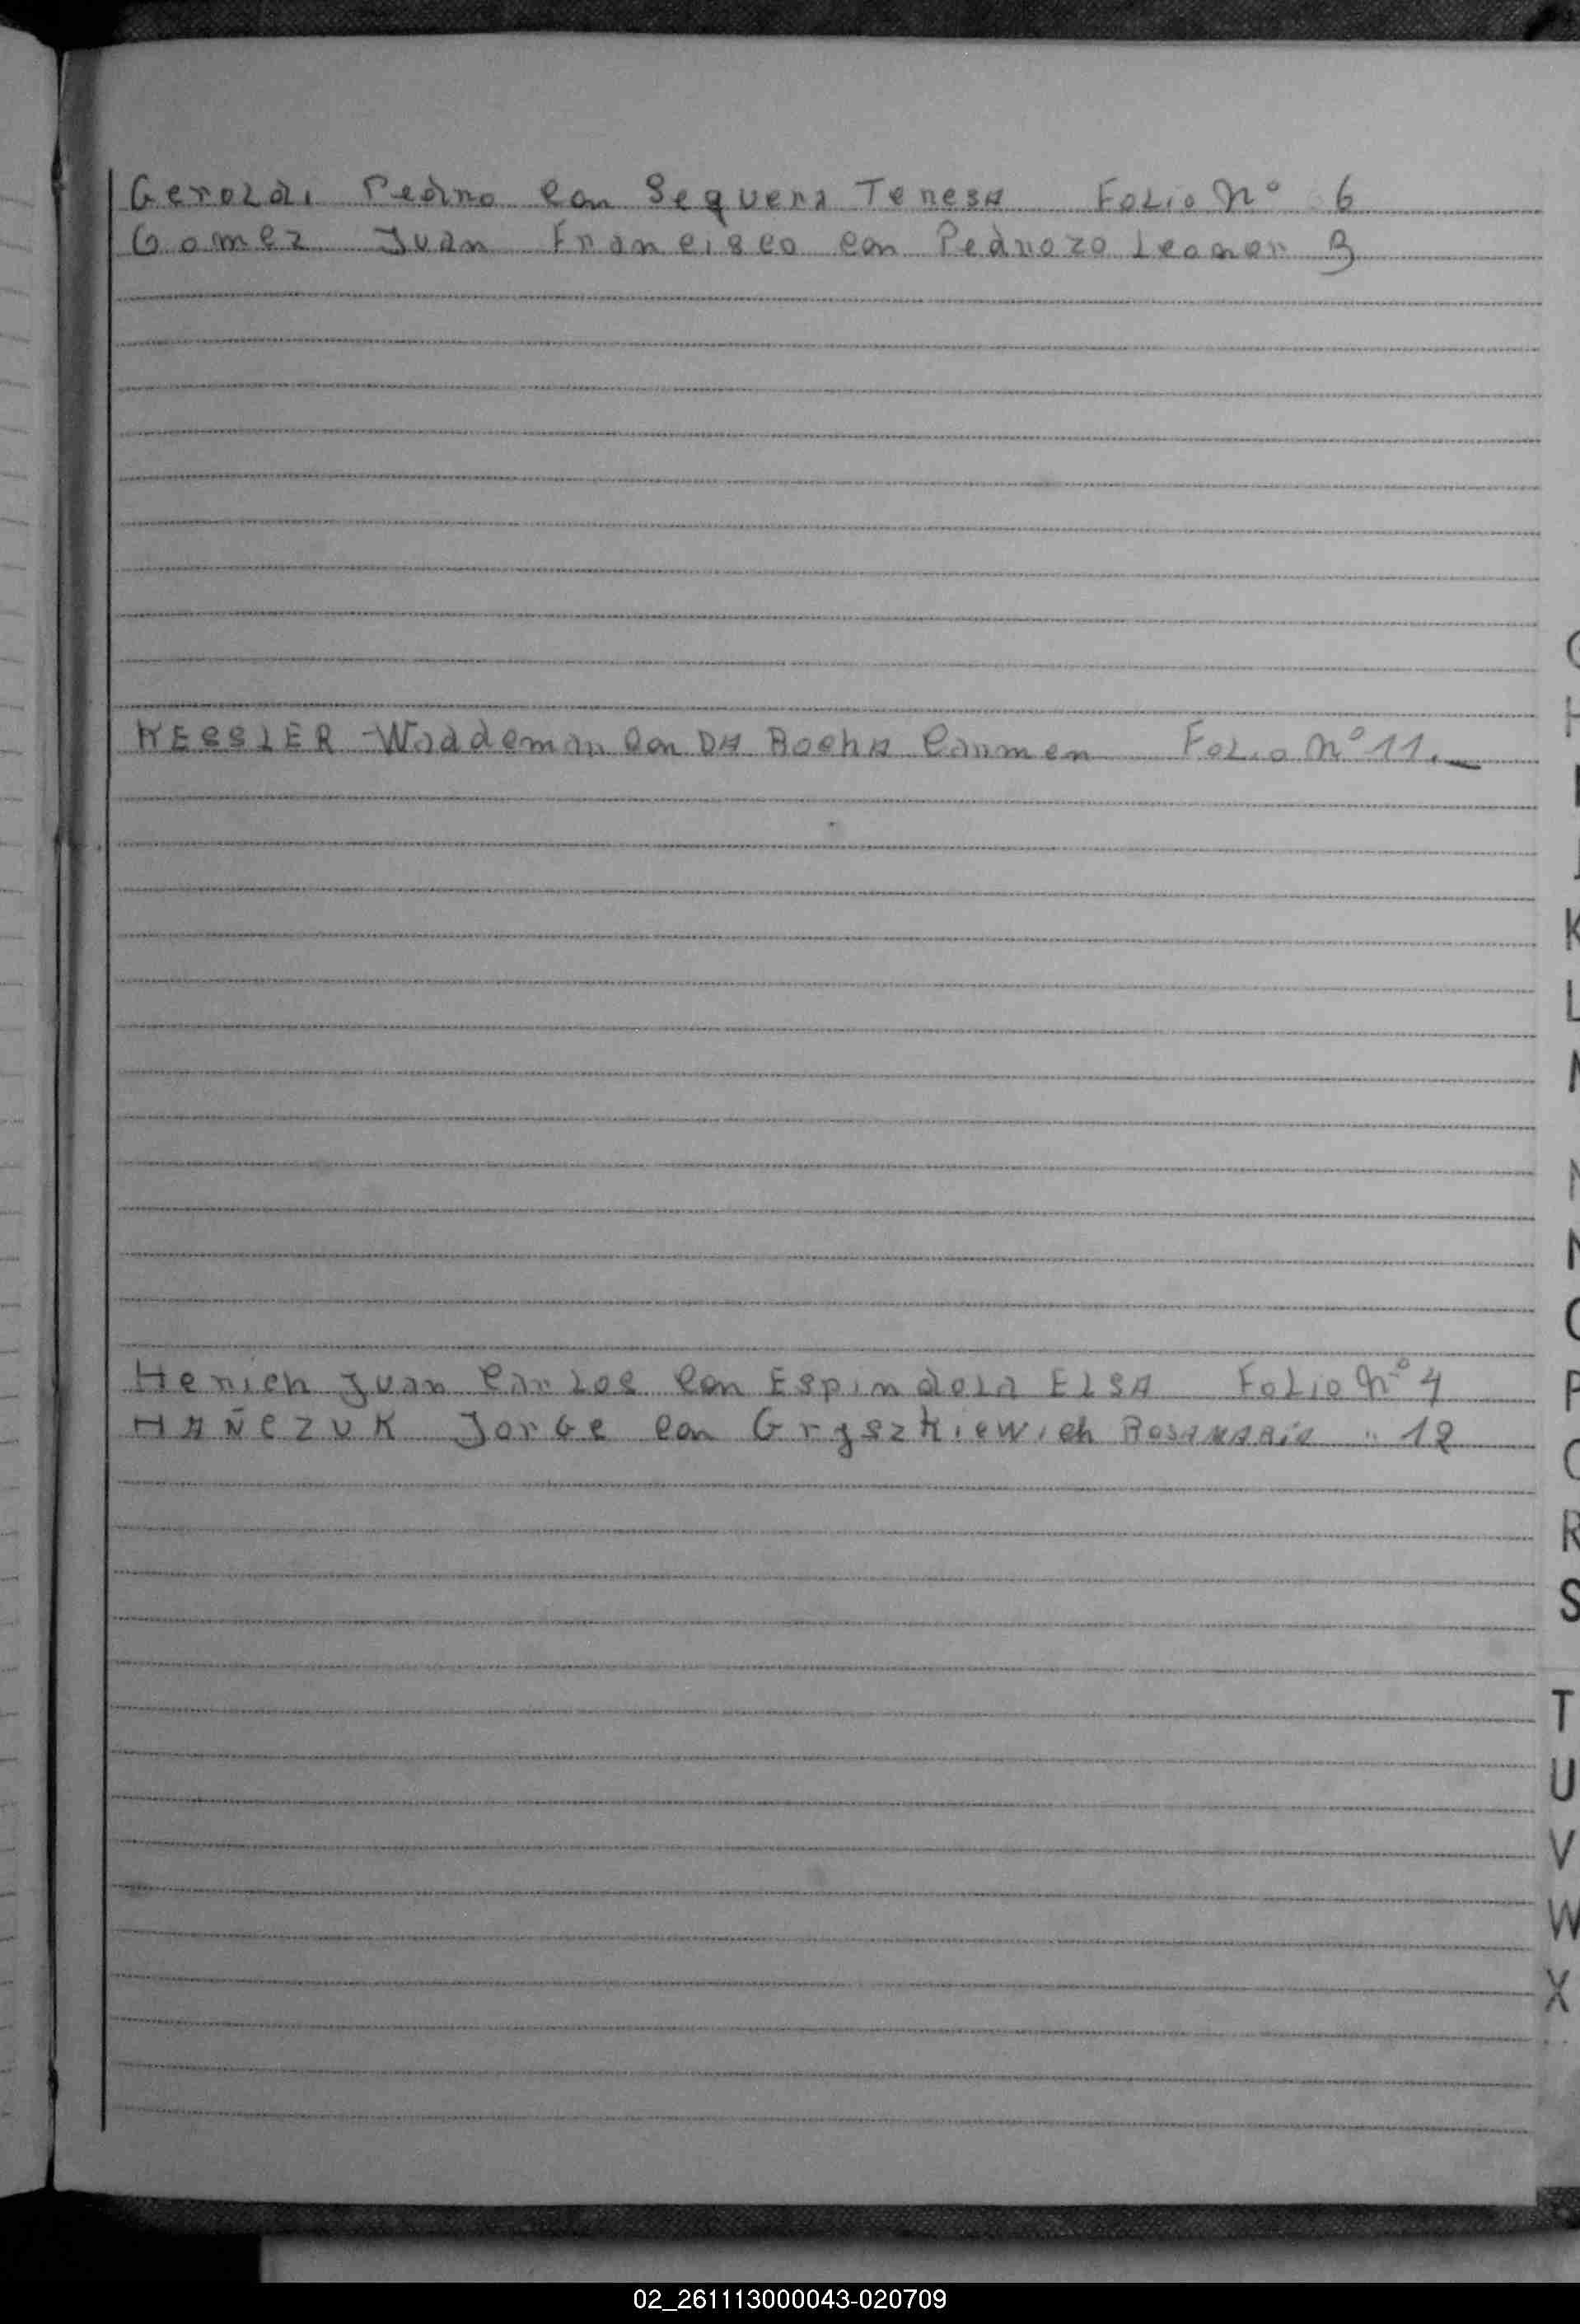 Geroldi Pedro con Sequera Teresa Folio Nº 6
Gomez Juan Francisco con Pedrozo Leonor 3
KESSLER Waddemar con DA Rocha Carmen Folio Nº 11.
Henich Juan Carlos con Espindola ELSA Folio Nº 4
HAÑCZUK Jorge con Gryszkiewich ROSAMARÍA " 12
K
L
P
R
S
T
U
V
W
X
02_261113000043-020709